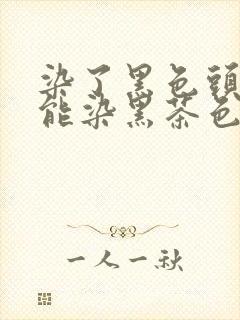 染了黑色頭
能染黑茶色
一人一秋